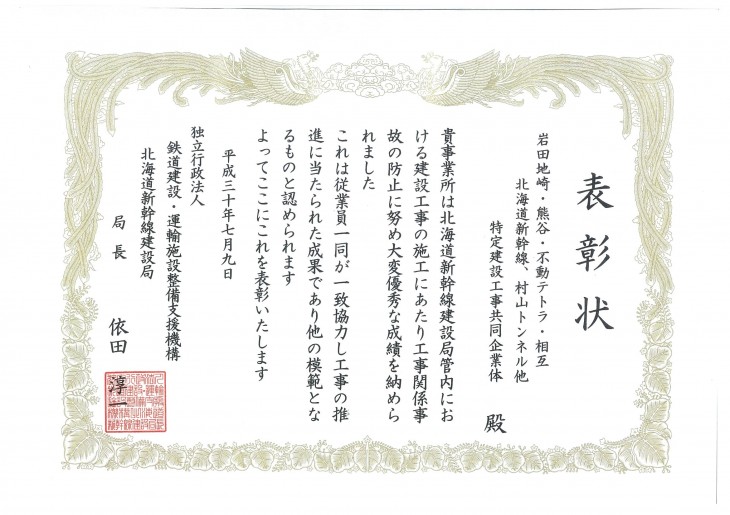 表彰状
岩田地崎・熊谷・不動テトラ・相互
北海道新幹線、村山トンネル他
特定建設工事共同企業体
殿
貴事業所は北海道新幹線建設局管内にお
ける建設工事の施工にあたり工事関係事
故の防止に努め大変優秀な成績を納めら
れました
これは従業員一同が一致協力し工事の推
進に当たられた成果であり他の模範とな
るものと認められます
よってここにこれを表彰いたします
平成三十年七月九日
独立行政法人
鉄道建設・運輸施設整備支援機構
北海道新幹線建設局
局長 依田 淳一